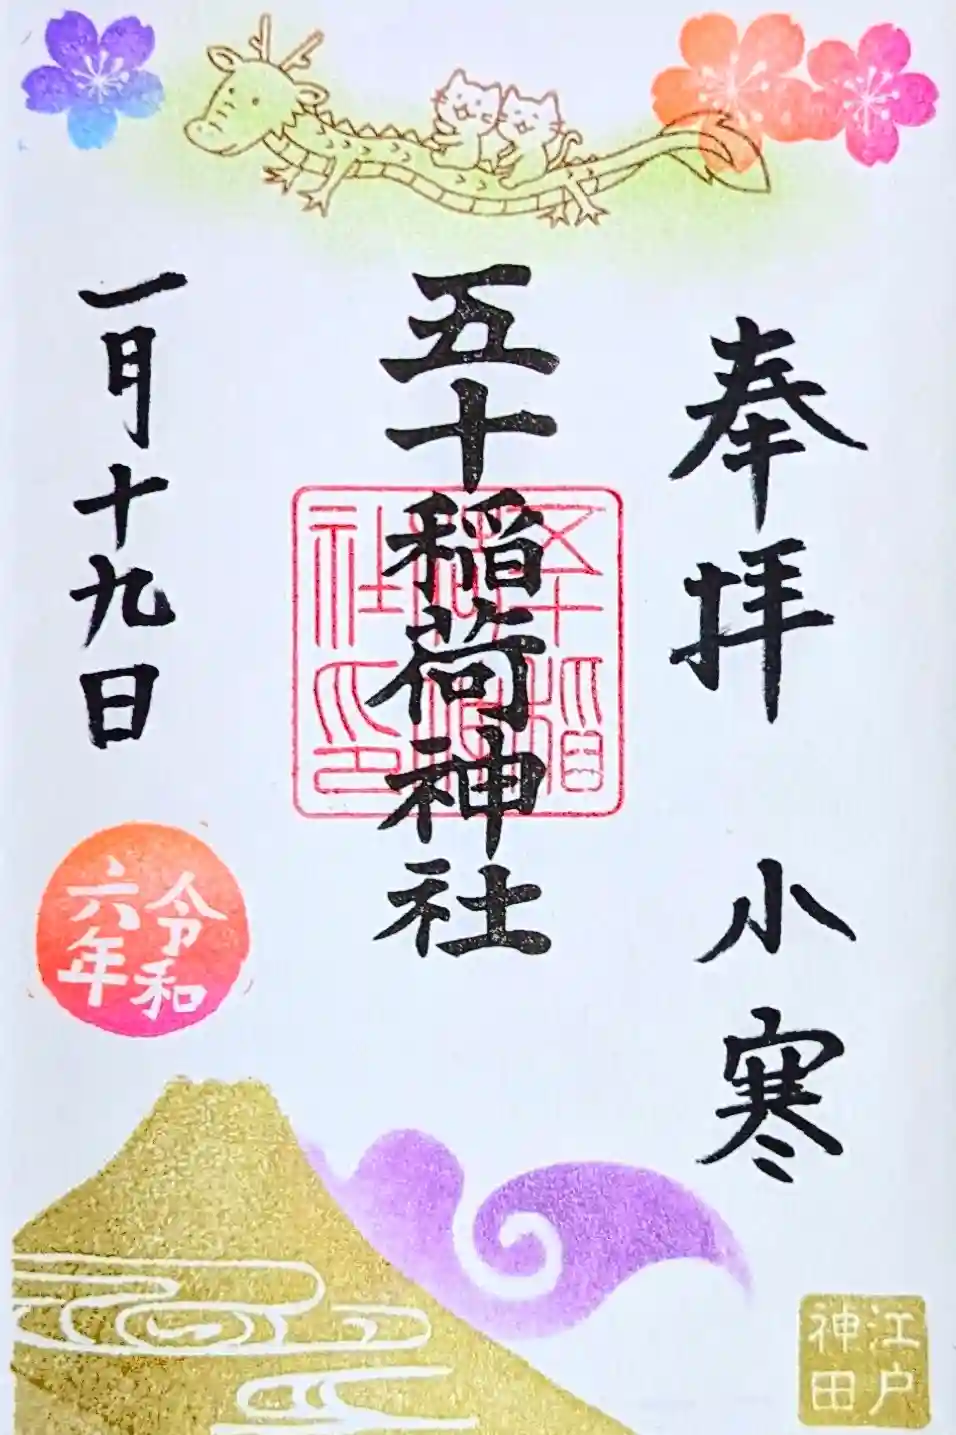 奉拝 小寒
五十稲荷神社
五十稲荷神社印
一月十九日
令和
六年
江戸
神田